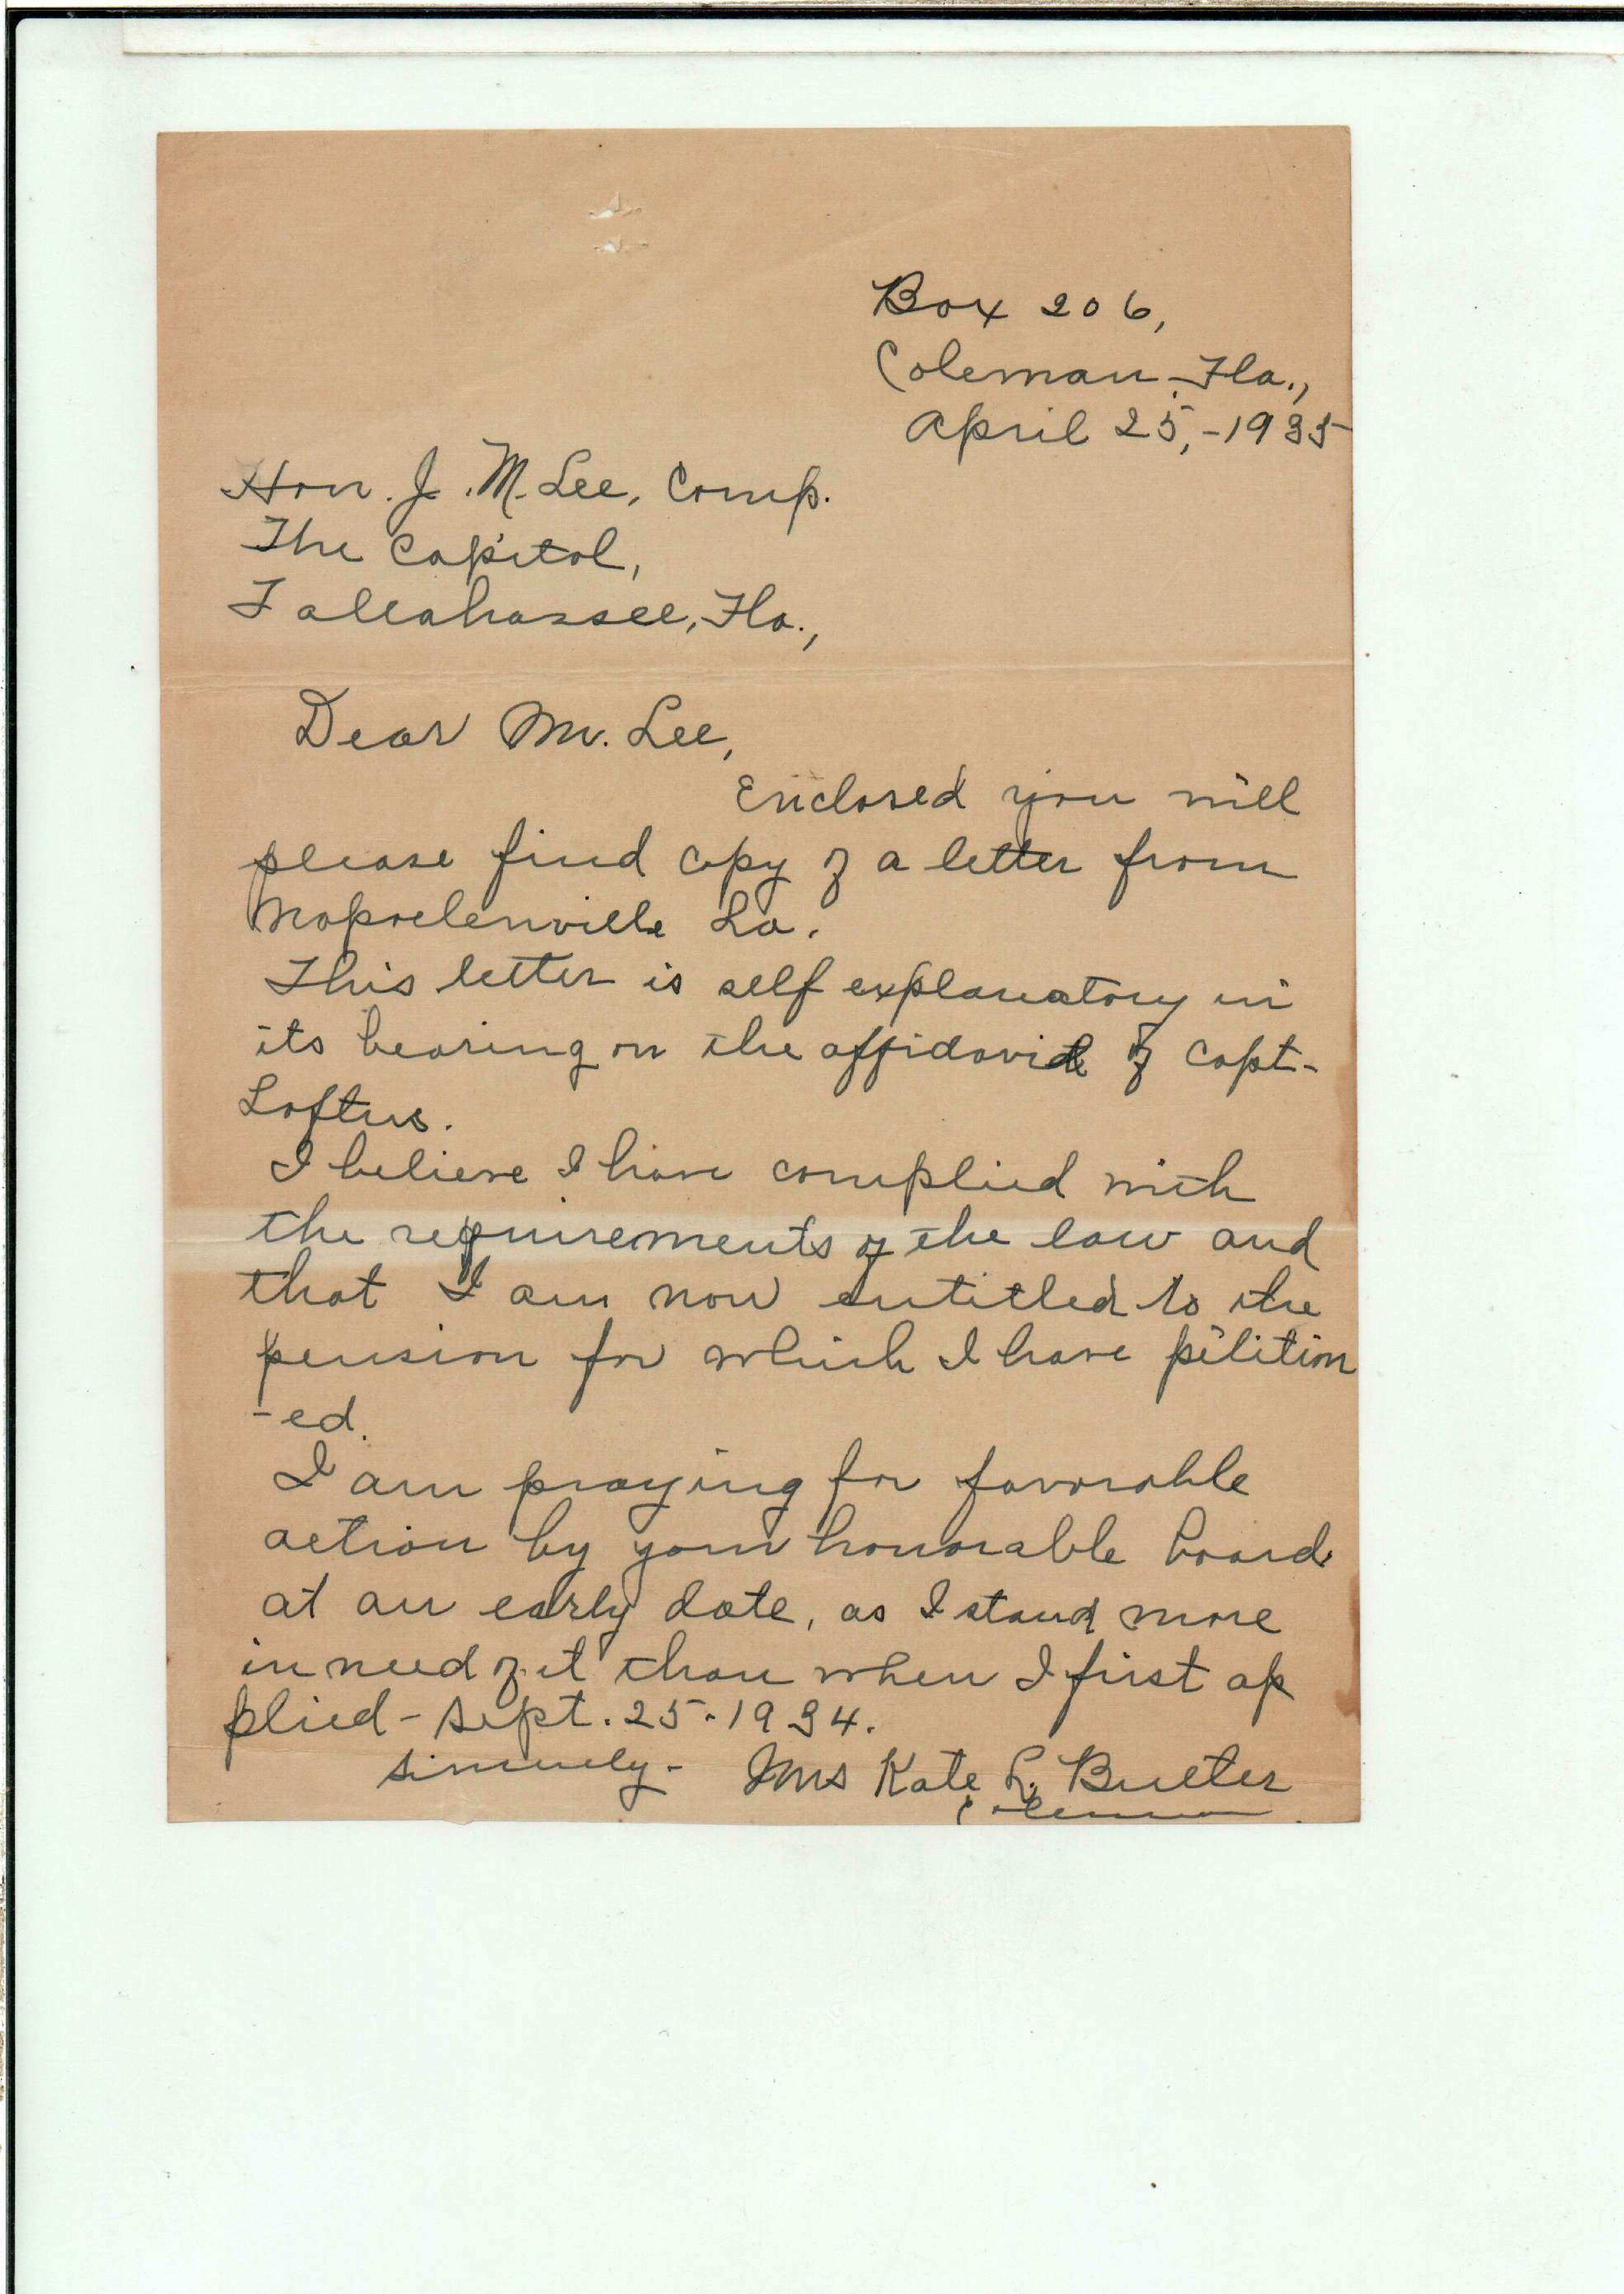 Box 206,
Coleman, Fla.,
April 25,-1935
Hon. J. M. Lee, Comp.
The Capitol,
Tallahassee, Fla.,
Dear Mr. Lee,
Enclosed you will
please find copy of a letter from
Napoleonville La.
This letter is self explanatory in
its bearing on the affidavit of Capt-
Loftus.
I believe I have complied with
the requirements of the law and
that I am now entitled to the
pension for which I have petition
-ed.
I am praying for favorable
action by your honorable board
at an early date, as I stand more
in need of it than when I first ap
plied - Sept. 25-1934.
Sincerely- Mrs Kate L. Butler
Coleman